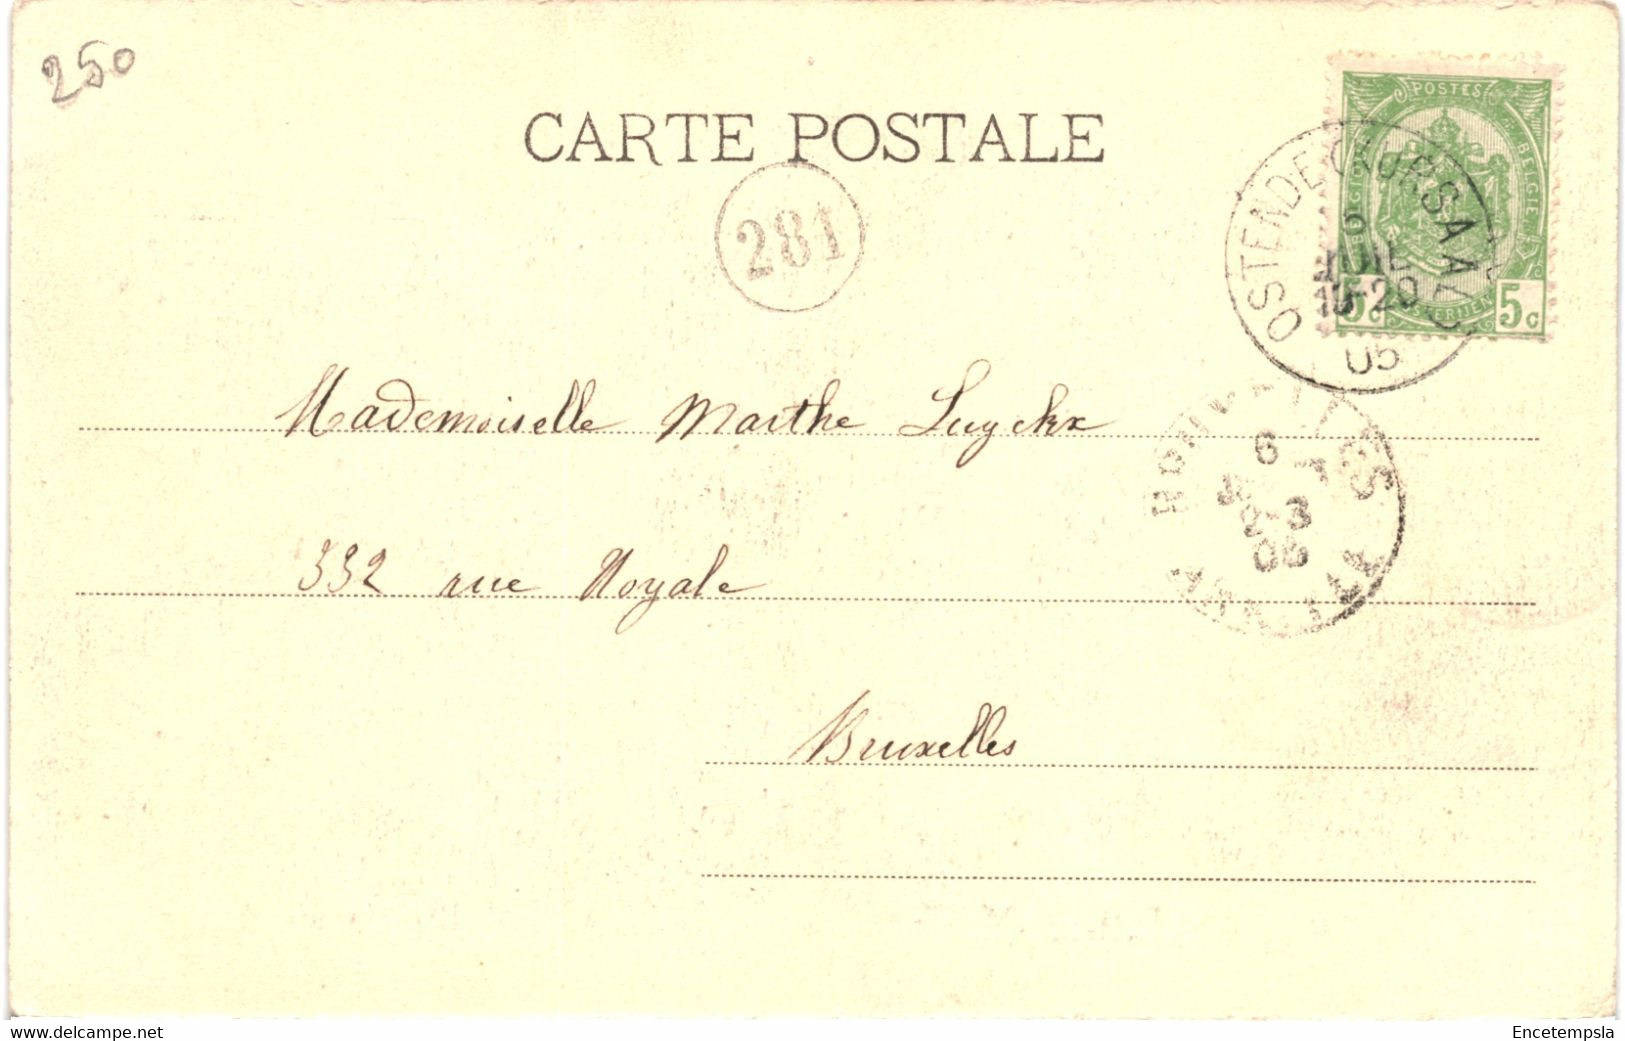 250
CARTE POSTALE
281
POSTES
BELGIE
OSTENDE (KURSAAL)
5c
5c
05
Mademoiselle Marthe Luyckx
6
2-3
05
332 rue Royale
Bruxelles
Encetempsla